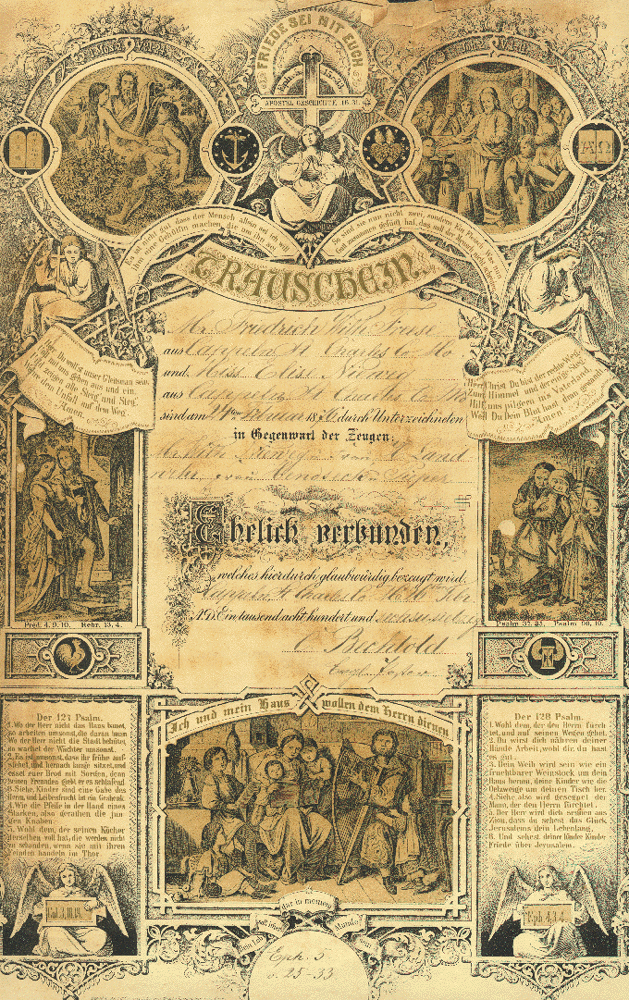 FRIEDE SEI MIT EUCH
APOSTEL GESCHICHTE 16. 31.
Es ist nicht gut, dass der Mensch allein sei, ich will
ihm eine Gehülfin machen, die um ihn sei
So sind sie nun nicht zwei, sondern Ein Fleisch. Was nun
Gott zusammen gefügt hat, das soll der Mensch nicht scheiden
TRAUSCHEIN.
Mr. Friedrich Wilh Freese
aus Cappeln St Charles Co Mo
und Miss Elise
aus Cappeln St Charles Co Mo
sind am 24ten 18 6 durch Unterzeichneten
in Gegenwart der Zeugen:
Ehelich verbunden,
welches hierdurch glaubwürdig bezeugt wird.
Cappeln St Charles Co
A.D. Ein tausend acht hundert und
Bechtold
Evgl. Pastor
Herr, Du woll'st unser Gleitsmann sein,
Und mit uns gehen aus und ein,
Uns zeigen alle Steig und Steg,
dem Unfall auf dem Weg.
Amen.
Herr Christ, Du bist der rechte Weg
Zum Himmel und der einige Steg
Hilf uns pilgern ins Vaterland,
Weil Du Dein Blut hast dran gewandt
Amen.
Pred. 4. 9. 10. Hebr. 13. 4.
Psalm 37. 25. Psalm
Ich und mein Haus wollen dem Herrn dienen
Der 127 Psalm.
1. Wo der Herr nicht das Haus bauet,
so arbeiten umsonst, die daran bauen
Wo der Herr nicht die Stadt behütet,
so wachet der Wächter umsonst.
2. Es ist umsonst, dass ihr frühe auf-
stehet, und hernach lange sitzet, und
esset euer Brod mit Sorgen, denn
seinen Freunden giebt er es schlafend.
3. Siehe, Kinder sind eine Gabe des
Herrn, und Leibesfrucht ist ein Geschenk.
4. Wie die Pfeile in der Hand eines
Starken, also gerathen die jun-
gen Knaben.
5. Wohl dem, der seinen Köcher
derselben voll hat, die werden nicht
zu schanden, wenn sie mit ihren
Feinden handeln im Thor
Der 128 Psalm.
1. Wohl dem, der den Herrn fürch-
tet, und auf seinen Wegen gehet.
2. Du wirst dich nähren deiner
Hände Arbeit, wohl dir, du hast
es gut.
3. Dein Weib wird sein wie ein
fruchtbarer Weinstock um dein
Haus herum, deine Kinder wie die
Oelzweige um deinen Tisch her.
4. Siehe, also wird gesegnet der
Mann, der den Herrn fürchtet.
5. Der Herr wird dich segnen aus
Zion, dass du sehest das Glück
Jerusalems dein Lebenlang,
6. Und sehest deiner Kinder Kinder
Friede über Jerusalem.
Col. 3, 18, 19.
Eph. 4, 3.4.
Eph. 5
v. 25-33